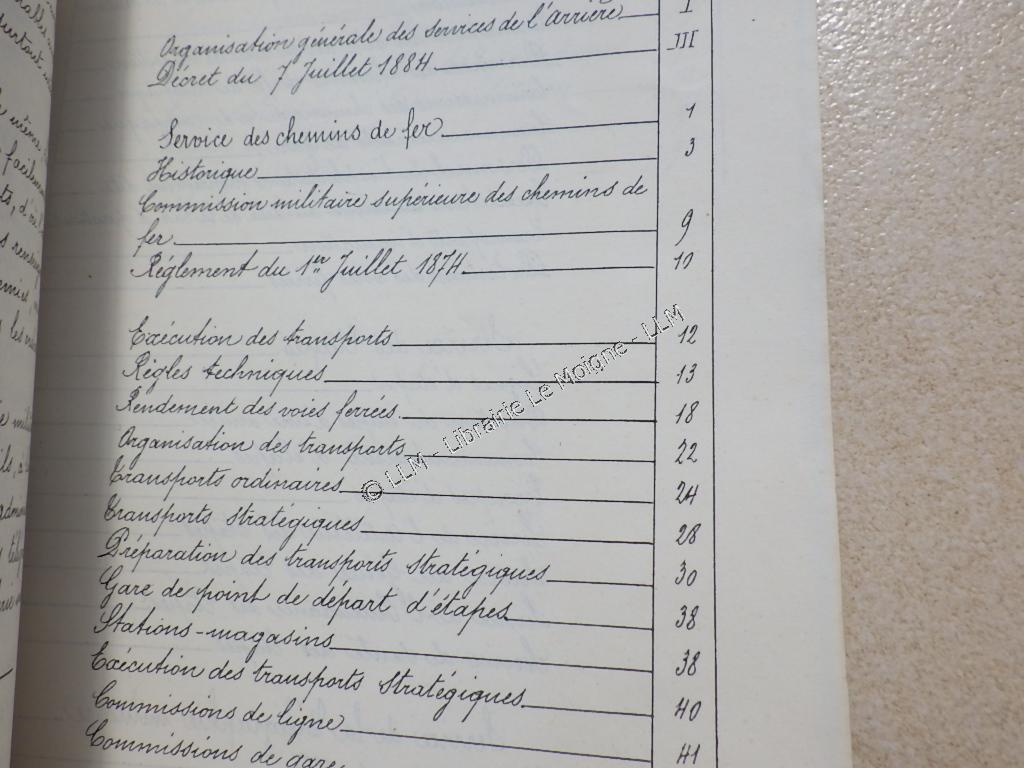 I
Organisation générale des services de l'arrière III
Décret du 7 Juillet 1884
Service des chemins de fer 1
Historique 3
Commission militaire supérieure des chemins de
fer 9
Réglement du 1er Juillet 1874 10
Exécution des transports 12
Règles techniques 13
Rendement des voies ferrées 18
Organisation des transports 22
Transports ordinaires 24
Transports stratégiques 28
Préparation des transports stratégiques 30
Gare de point de départ d'étapes 38
Stations-magasins 38
Exécution des transports stratégiques 40
Commissions de ligne 41
Commissions de gare
© LLM - Librairie Le Moigne - LLM